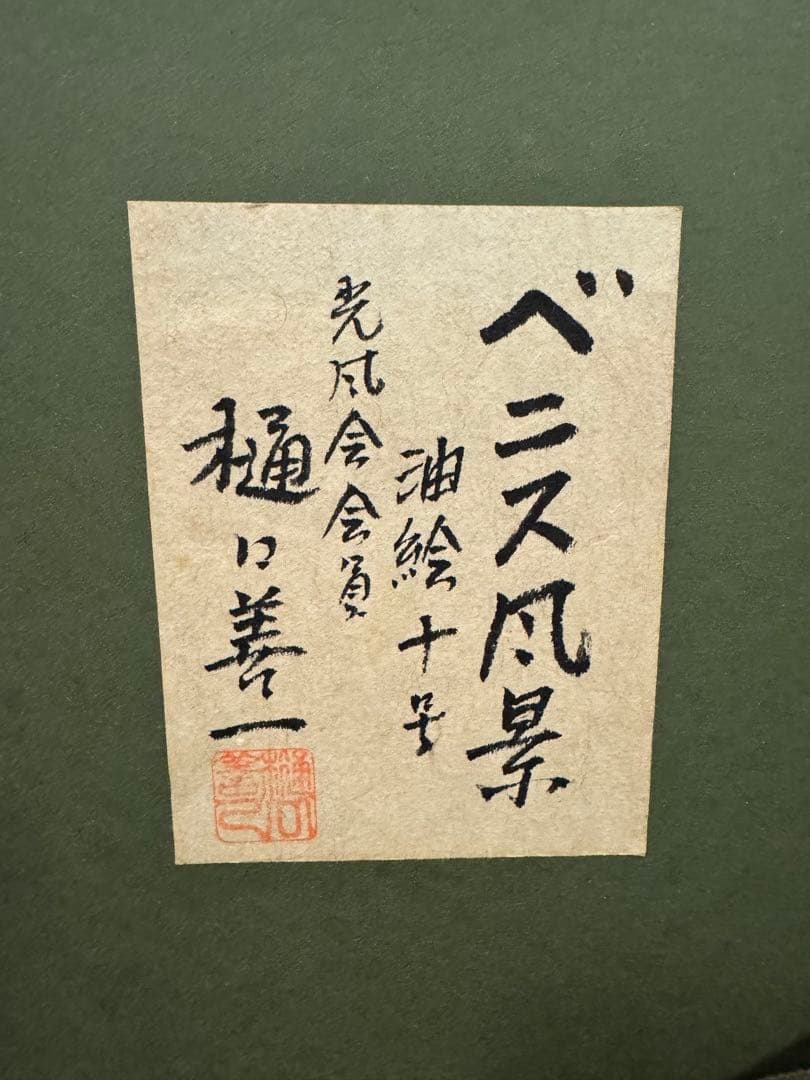 ベニス風景
油絵十号
光風会会員
樋口善一